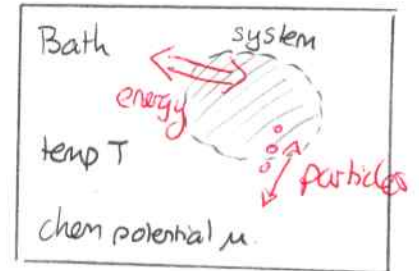 Bath
system
energy
temp T
particles
chem potential μ.